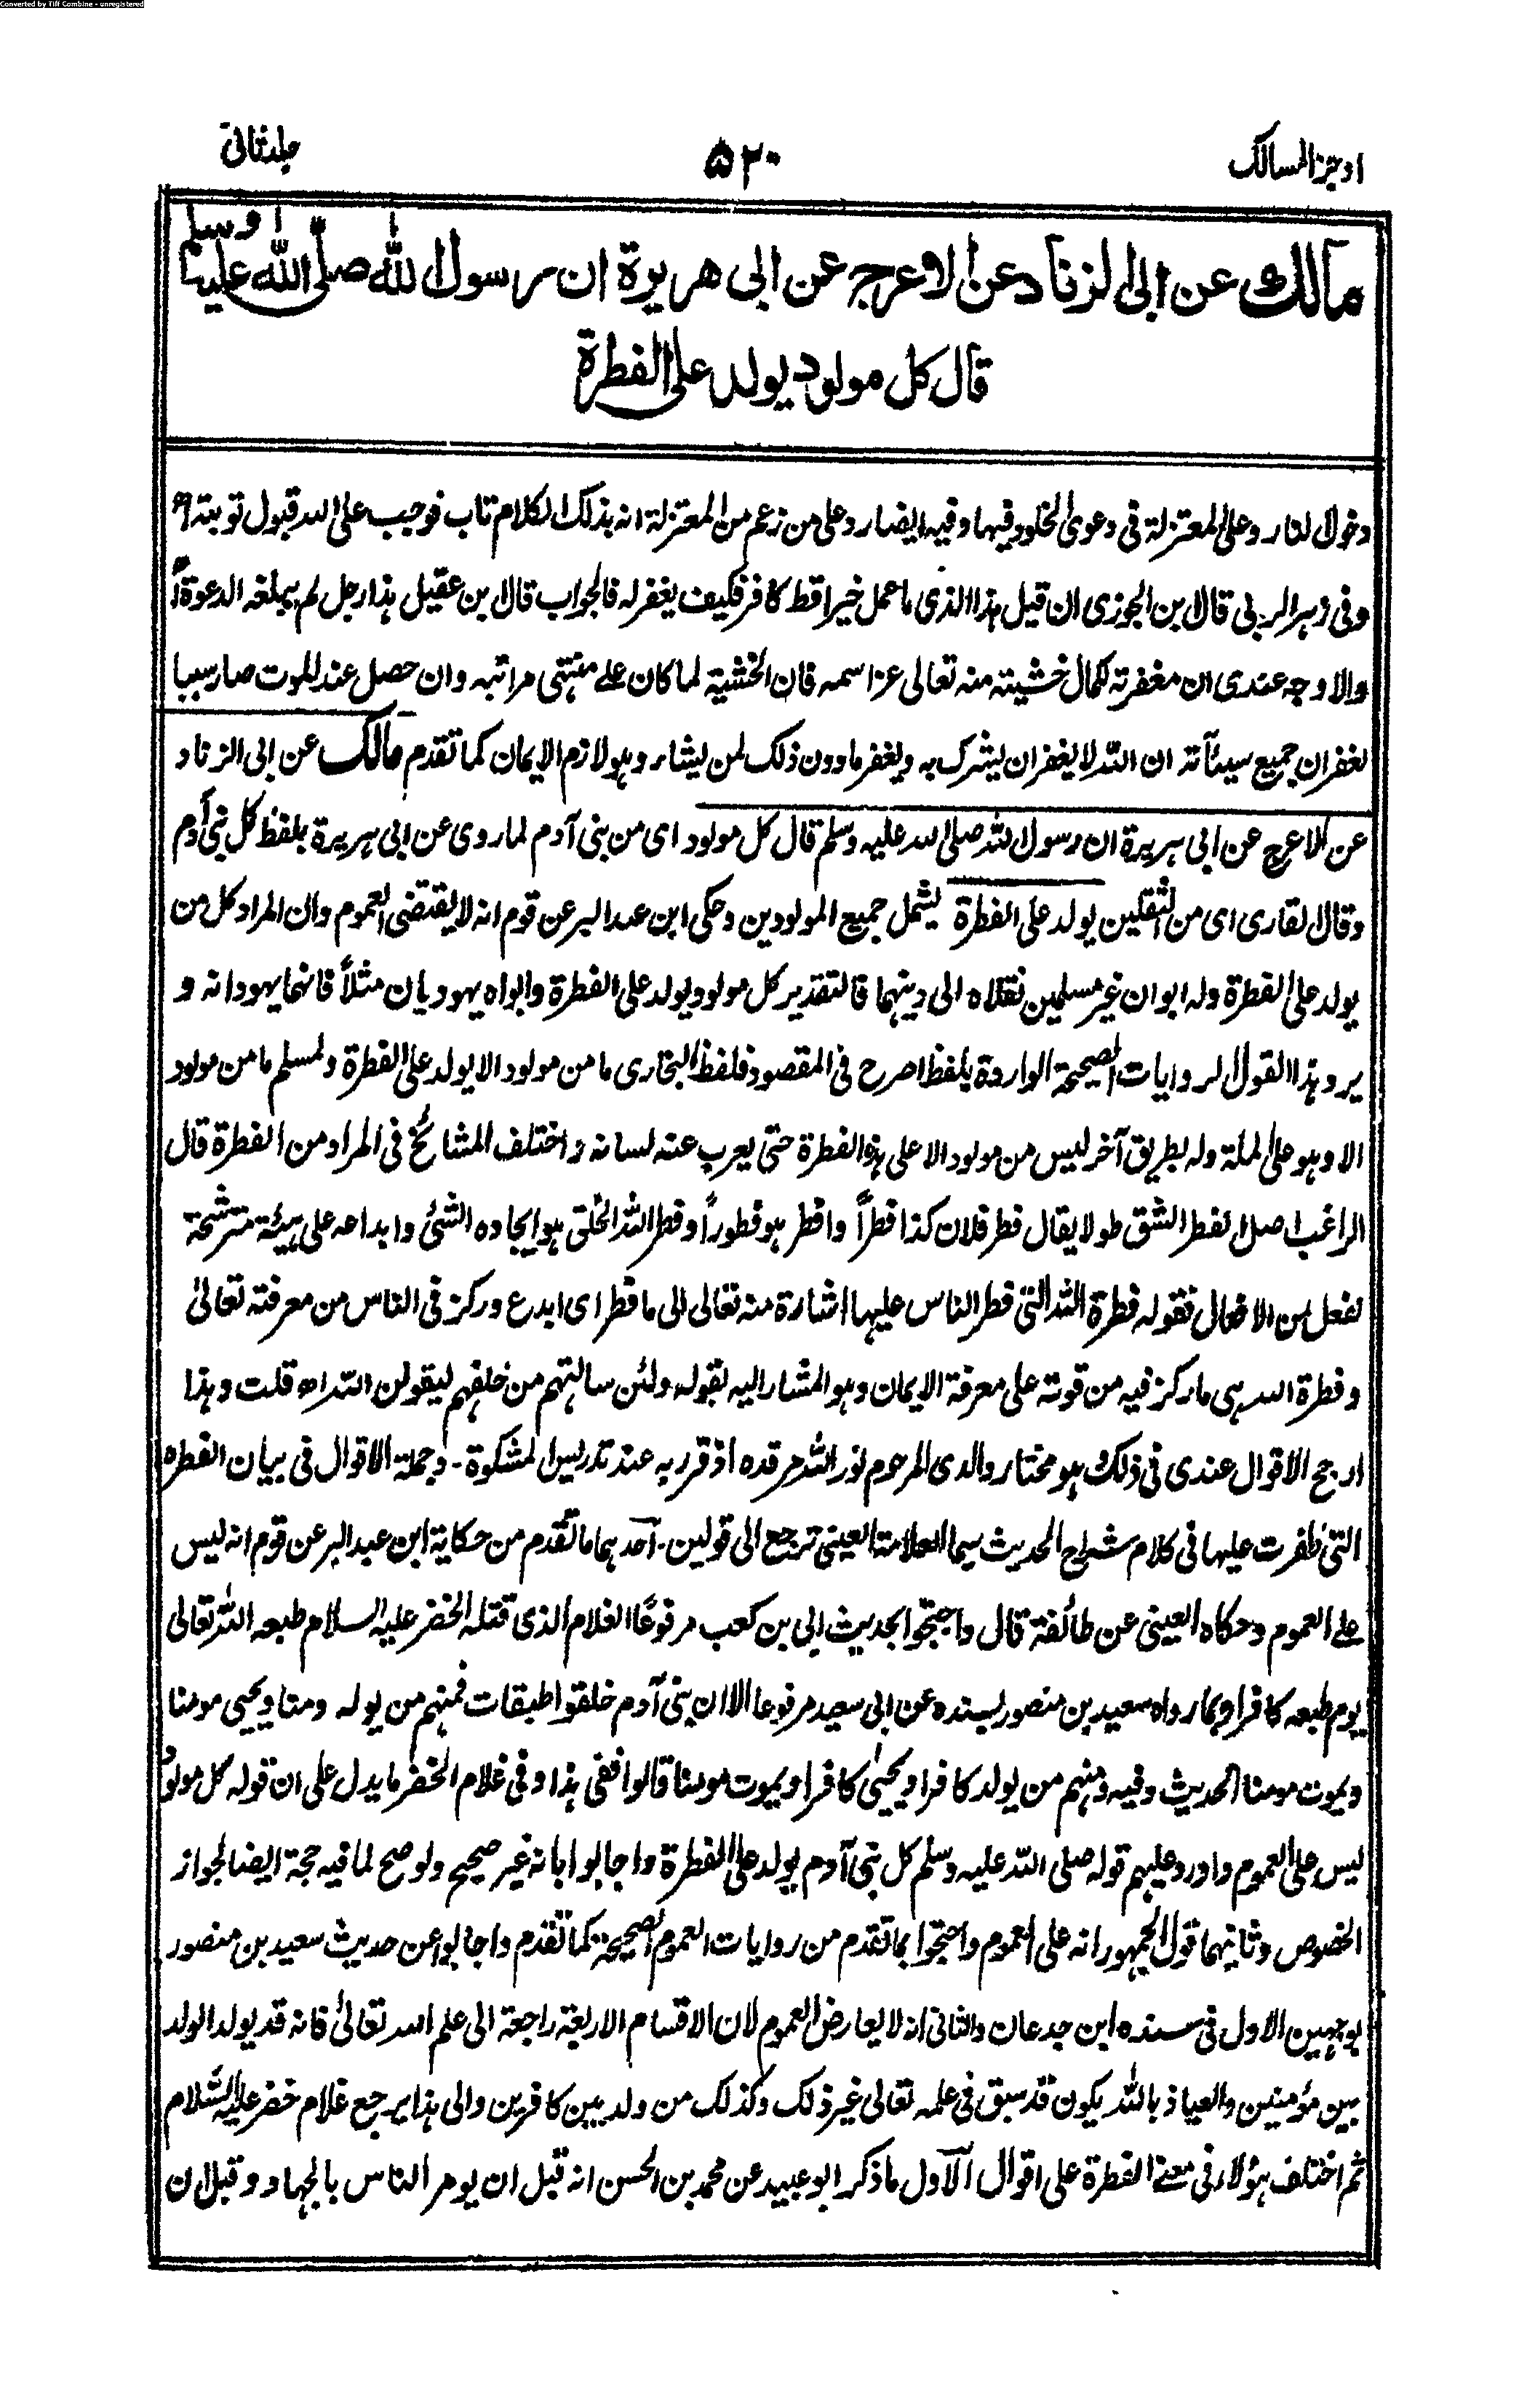 Converted by Tiff Combine - unregistered
اوجز المسالك
۵۲۰
جلد ثانی
مالك عن ابی الزناد عن الاعرج عن ابی هريرة ان رسول الله صلی الله عليه وسلم
قال كل مولود يولد علی الفطرة
دخول النار وعلی المعتزلة فی دعوی الخلود فيها وفيه ايضا رد علی من زعم من المعتزلة انه بذلك الكلام تاب فوجب علی الله قبول توبته اھ
وفی زهر الربی قال ابن الجوزی ان قيل هذا الذی ما عمل خيرا قط كافر فكيف يغفر له فالجواب قال ابن عقيل هذا رجل لم يبلغه الدعوة اھ
والاوجه عندی ان مغفرته لكمال خشيته منه تعالی عز اسمه فان الخشية لما كان علے منتهی مراتبه وان حصل عند الموت صار سببا
لغفران جميع سيئآته ان الله لا يغفر ان يشرك به ويغفر ما دون ذلك لمن يشاء وهو لازم الايمان كما تقدم مالك عن ابی الزناد
عن الاعرج عن ابی هريرة ان رسول الله صلی الله عليه وسلم قال كل مولود ای من بنی آدم لما روی عن ابی هريرة بلفظ كل بنی آدم
وقال القاری ای من الثقلين يولد علی الفطرة يشمل جميع المولودين وحكی ابن عبد البر عن قوم انه لا يقتضی العموم وان المراد كل من
يولد علی الفطرة وله ابوان غير مسلمين نقلاه الی دينهما فالتقدير كل مولود يولد علی الفطرة وابواه يهوديان مثلاً فانهما يهودانه و
يرد هذا القول الروايات الصحيحة الواردة بلفظ اصرح فی المقصود فلفظ البخاری ما من مولود الا يولد علی الفطرة ولمسلم ما من مولود
الا وهو علی الملة وله بطريق آخر ليس من مولود الا علی هذه الفطرة حتی يعرب عنه لسانه واختلف المشائخ فی المراد من الفطرة قال
الراغب اصل الفطر الشق طولا يقال فطر فلان كذا فطراً وافطر هو فطوراً وفطر الله الخلق هو ايجاده الشئ وابداعه علی هيئة مترشحة
لفعل من الافعال فقوله فطرة الله التی فطر الناس عليها اشارة منه تعالی الی ما فطر ای ابدع وركز فی الناس من معرفته تعالیٰ
وفطرة الله هی ما ركز فيه من قوته علی معرفة الايمان وهو المشار اليه بقوله ولئن سالتهم من خلقهم ليقولن الله اھ قلت وهذا
ارجح الاقوال عندی فی ذلك هو مختار والدی المرحوم نور الله مرقده اذ قرر به عند تدريس المشكوة ۔ وجملة الاقوال فی بيان الفطره
التی ظفرت عليها فی كلام شراح الحديث سيما العلامة العينی ترجع الی قولين ۔ احدهما ما تقدم من حكاية ابن عبد البر عن قوم انه ليس
علے العموم وحكاه العينی عن طائفة قال واحتجوا بحديث ابی بن كعب مرفوعًا الغلام الذی قتله الخضر عليه السلام طبعه الله تعالی
يوم طبعه كافرا وبما رواه سعيد بن منصور بسنده عن ابی سعيد مرفوعا الا ان بنی آدم خلقوا طبقات فمنهم من يولد مومنا ويحيی مومنا
ويموت مومنا الحديث وفيه ومنهم من يولد كافرا ويحيیٰ كافرا ويموت مومنا قالوا ففی هذا وفی غلام الخضر ما يدل علی ان قوله كل مولود
ليس علی العموم واورد عليهم قوله صلی الله عليه وسلم كل بنی آدم يولد علی الفطرة واجابوا بانه غير صحيح ولو صح لما فيه حجة ايضا لجواز
الخصوص وثانيهما قول الجمهور انه علی العموم واحتجوا بما تقدم من روايات العموم الصحيحة كما تقدم واجابوا عن حديث سعيد بن منصور
بوجهين الاول فی سنده ابن جدعان والثانی انه لا يعارض العموم لان الاقسام الاربعة راجعة الی علم الله تعالیٰ فانه قد يولد الولد
بين مؤمنين والعياذ بالله يكون قد سبق فی علمه تعالی غير ذلك وكذلك من ولد بين كافرين والی هذا يرجع غلام خضر عليه السلام
ثم اختلف هؤلاء فی معنے الفطرة علی اقوال الاول ما ذكر ابو عبيد عن محمد بن الحسن انه قبل ان يومر الناس بالجهاد وقبل ان